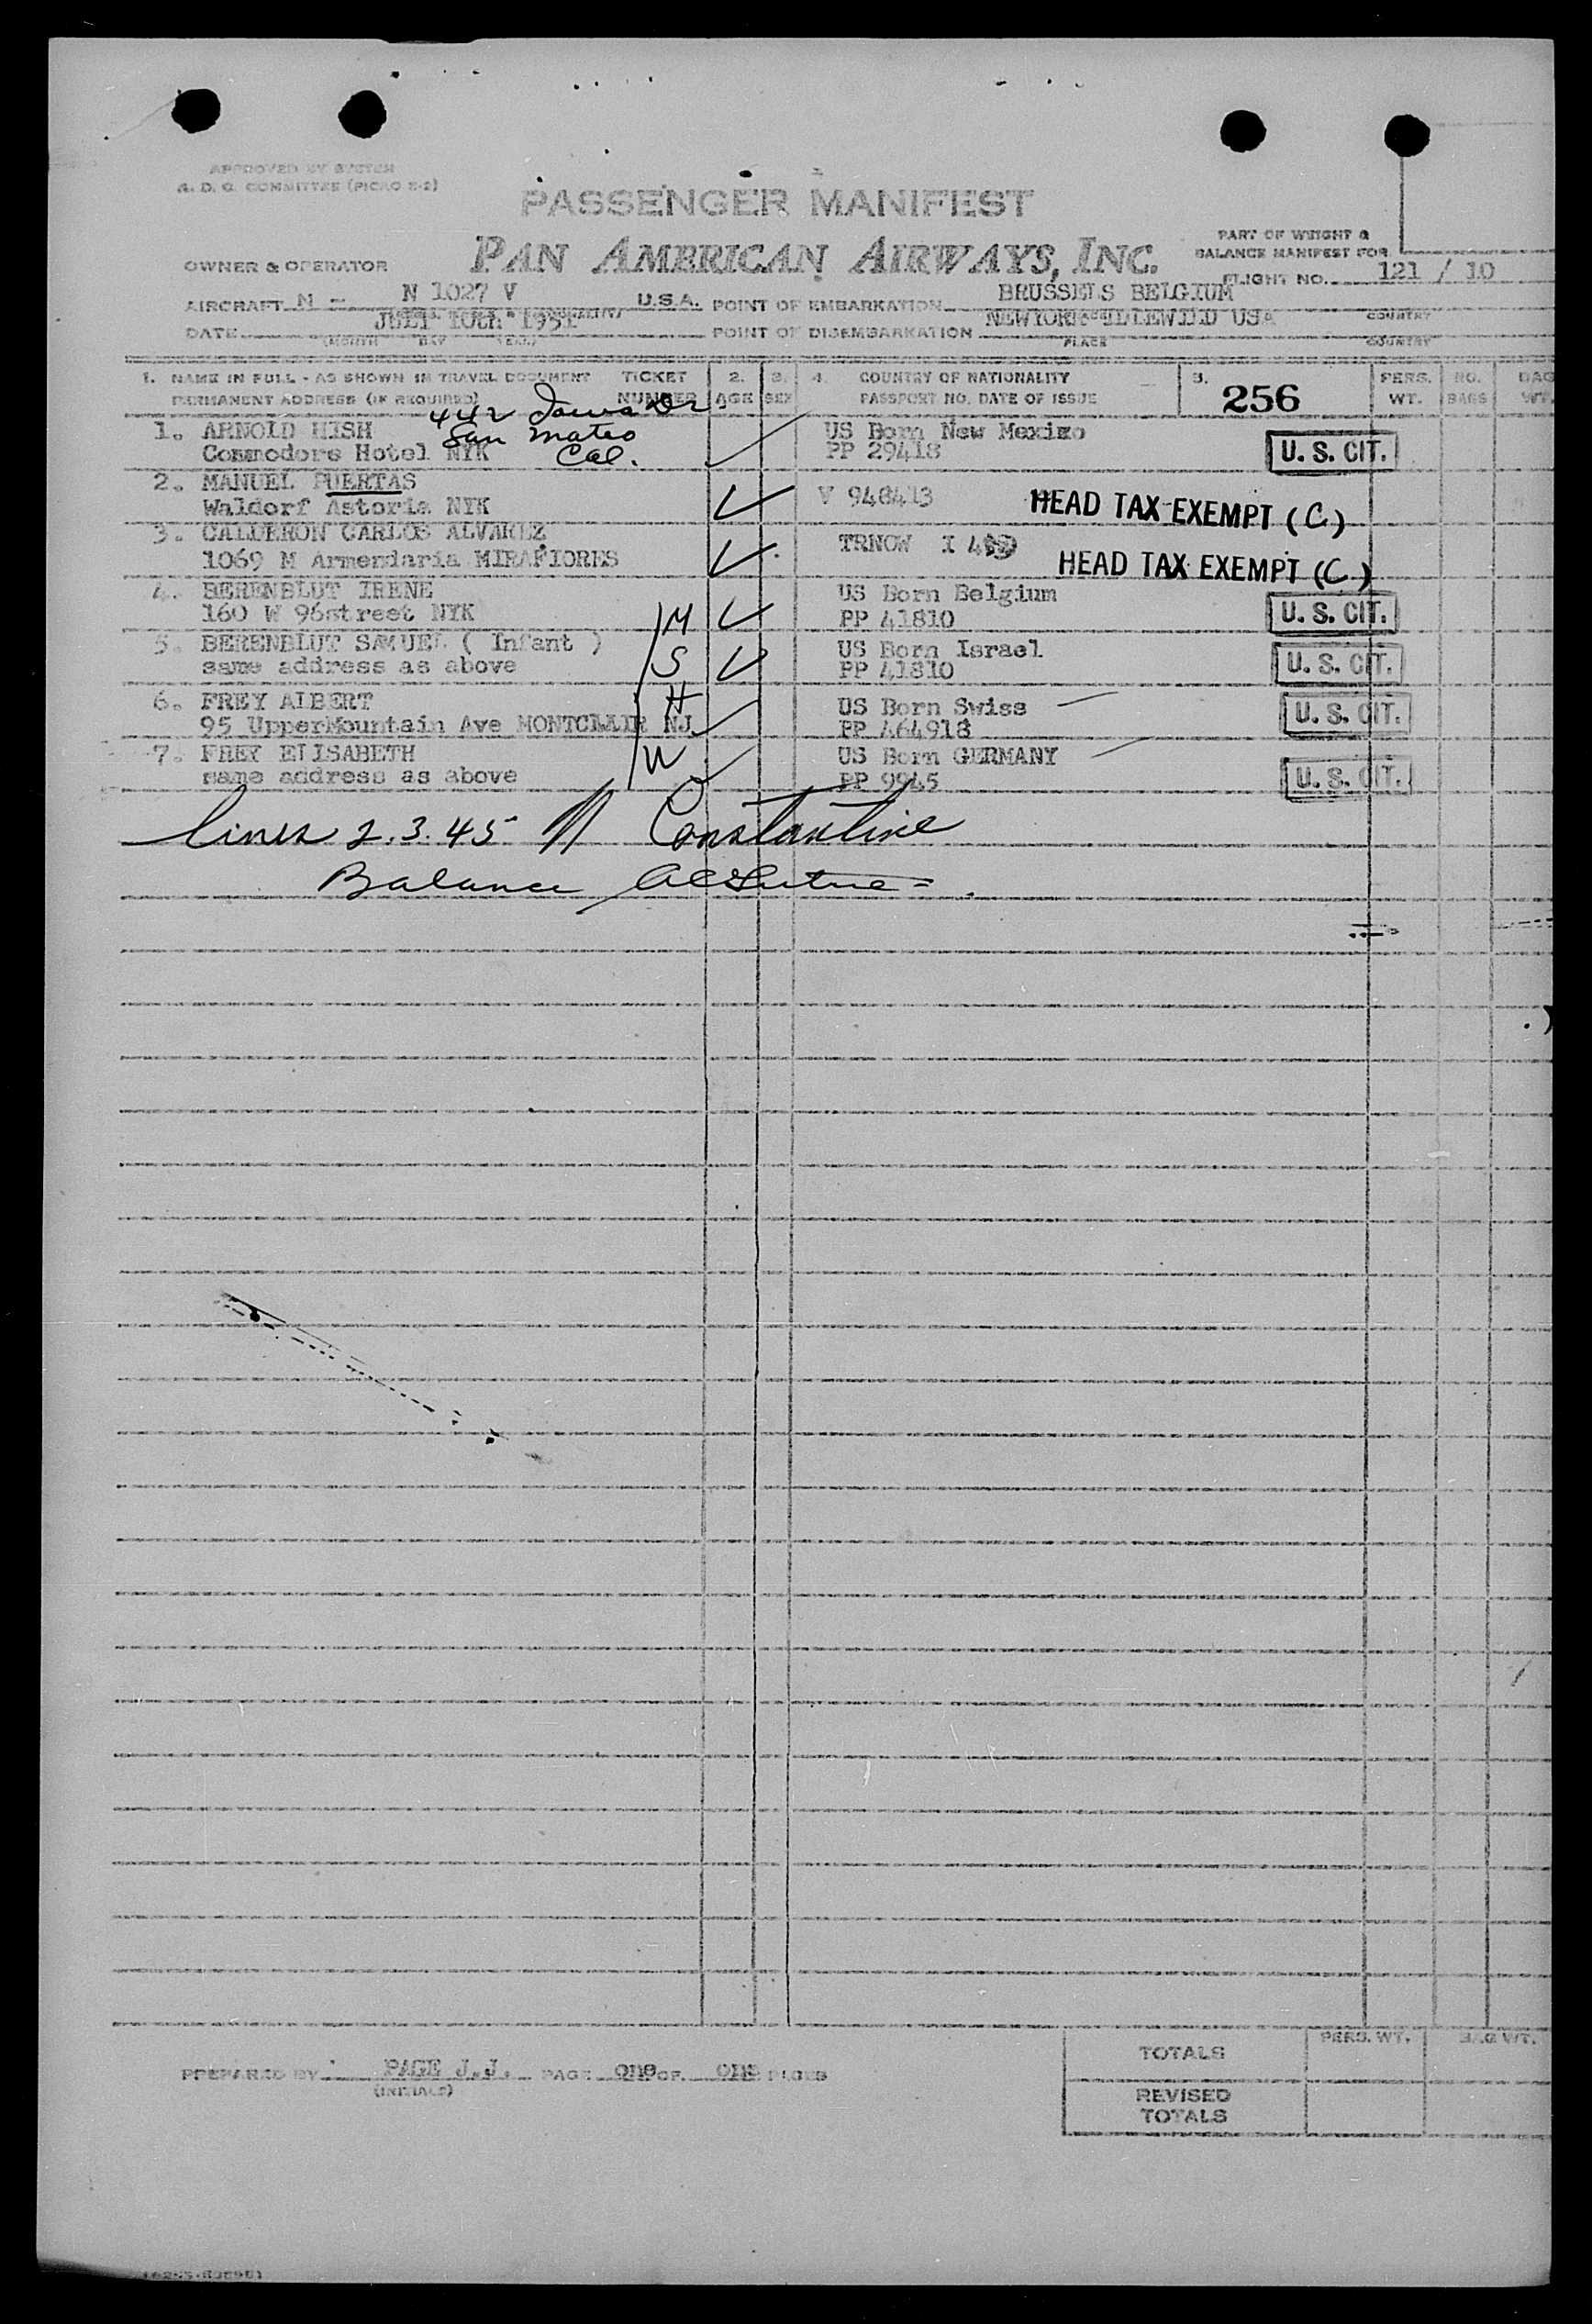 APPROVED BY SYSTEM
A. D. C. COMMITTEE (PICAO E-2)
PASSENGER MANIFEST
PAN AMERICAN AIRWAYS, INC.
PART OF WEIGHT &
BALANCE MANIFEST FOR
OWNER & OPERATOR
FLIGHT NO. 121 / 10
AIRCRAFT N - N 1027 V U.S.A. POINT OF EMBARKATION BRUSSELS BELGIUM
COUNTRY
DATE JULY 10th 1951 POINT OF DISEMBARKATION NEWYORK IDLEWILD USA
(MONTH DAY YEAR) PLACE COUNTRY
1. NAME IN FULL - AS SHOWN IN TRAVEL DOCUMENT TICKET 2. 3. 4. COUNTRY OF NATIONALITY 5. PERS. NO. BAG
PERMANENT ADDRESS (IF REQUIRED) NUMBER AGE SEX PASSPORT NO. DATE OF ISSUE 256 WT. BAGS WT.
442 Iowa Dr.
1. ARNOLD HISH San Mateo US Born New Mexixo
Commodore Hotel NYK Cal. PP 29418 U. S. CIT.
2. MANUEL PUERTAS
Waldorf Astoria NYK V 948413 HEAD TAX EXEMPT (C)
3. CALDERON CARLOS ALVAREZ TRNOW I
1069 M Armendaria MIRAFIORES HEAD TAX EXEMPT (C)
4. BERENBLUT IRENE US Born Belgium
160 W 96street NYK M PP 41810 U. S. CIT.
5. BERENBLUT SAMUEL ( Infant ) US Born Israel
same address as above S PP 41810 U. S. CIT.
6. FREY ALBERT H US Born Swiss
95 UpperMountain Ave MONTCLAIR NJ. PP 464918 U. S. CIT.
7. FREY ELISABETH W US Born GERMANY
same address as above PP 9945 U. S. CIT.
lines 2.3.45 Constantine
Balance
PREPARED BY PAGE J.J. PAGE one OF one PAGES
(INITIALS)
TOTALS PERS. WT. BAG WT.
REVISED
TOTALS